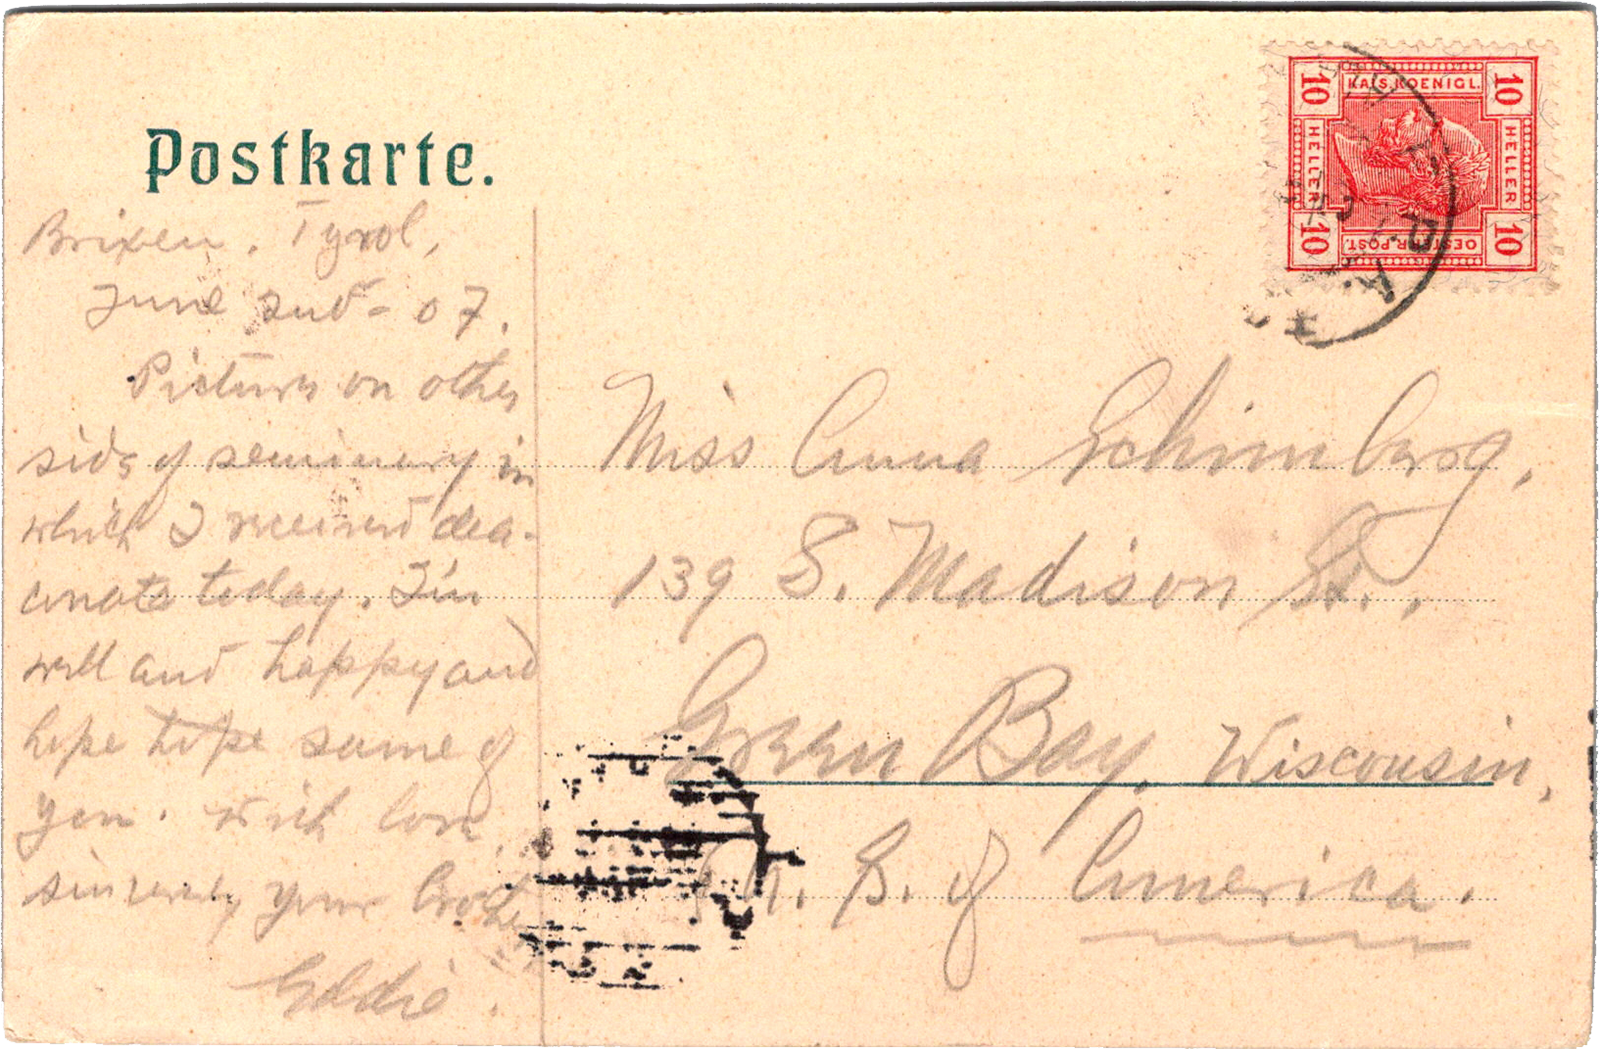 Postkarte.
Brixen, Tyrol,
June 2nd - 07.
Picture on other
side of seminary in
which I received dea-
conate today. I'm
well and happy and
hope hope same of
you. With love
sincerely your brother
Eddie.
KAIS. KOENIGL.
10
10
HELLER
HELLER
10
10
OESTERR. POST.
Miss Anna Schimberg,
139 S. Madison St.,
Green Bay, Wisconsin,
U. S. of America.